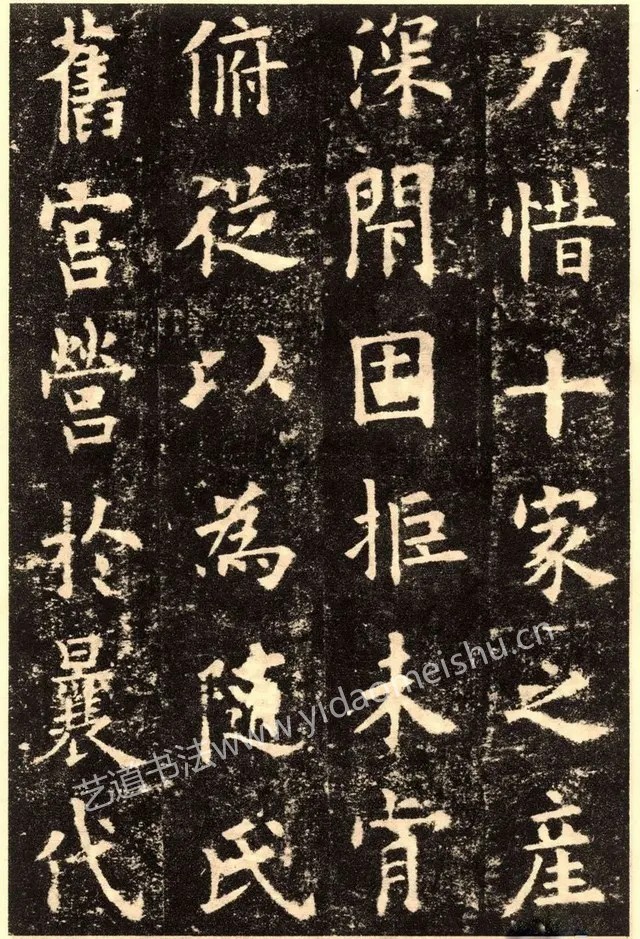 力惜十家之產
深閇固拒未肯
俯從以為隨氏
舊宮營於曩代
艺道书法www.yidaomeishu.cn